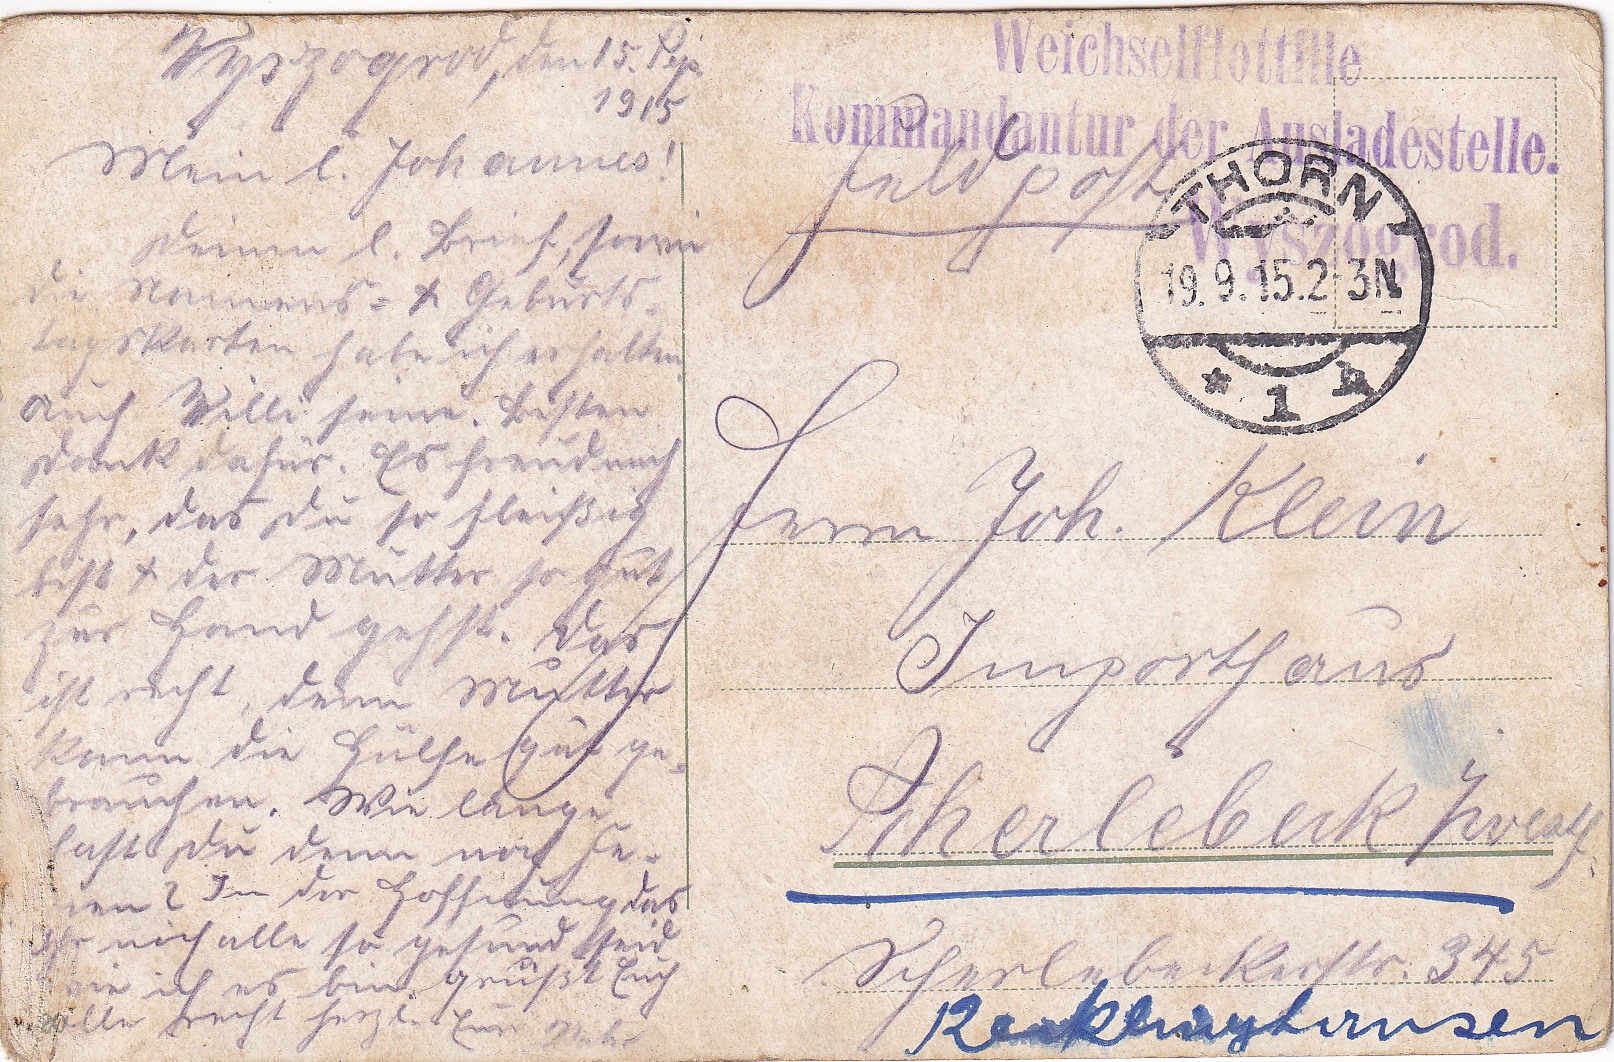 Wyszogrod, den 15. Sep.
1915
Mein l. Johannes!
Deinen l. Brief, sowie
die Namens= & Geburts-
tagskarten habe ich erhalten
auch Willi seine. Besten
Dank dafür. Es freud mich
sehr, das Du so fleißig
bist & der Mutter so gut
zur Hand gehst. Das
ist recht, denn Mutter
kann die Hülfe gut ge-
brauchen. Wie lange
hast Du denn noch Fe-
rien? In der Hoffnung das
Ihr noch alle so gesund seid
wie ich es bin, grüßt Euch
alle recht herzl. Euer Vater
Weichselflottille
Kommandantur der Ausladestelle.
Wyszogrod.
Feldpost
THORN
19.9.15.2-3N
* 1 h
Herrn Joh. Klein
Importhaus
Scherlebeck
Scherlebeckerstr. 345
Recklinghausen